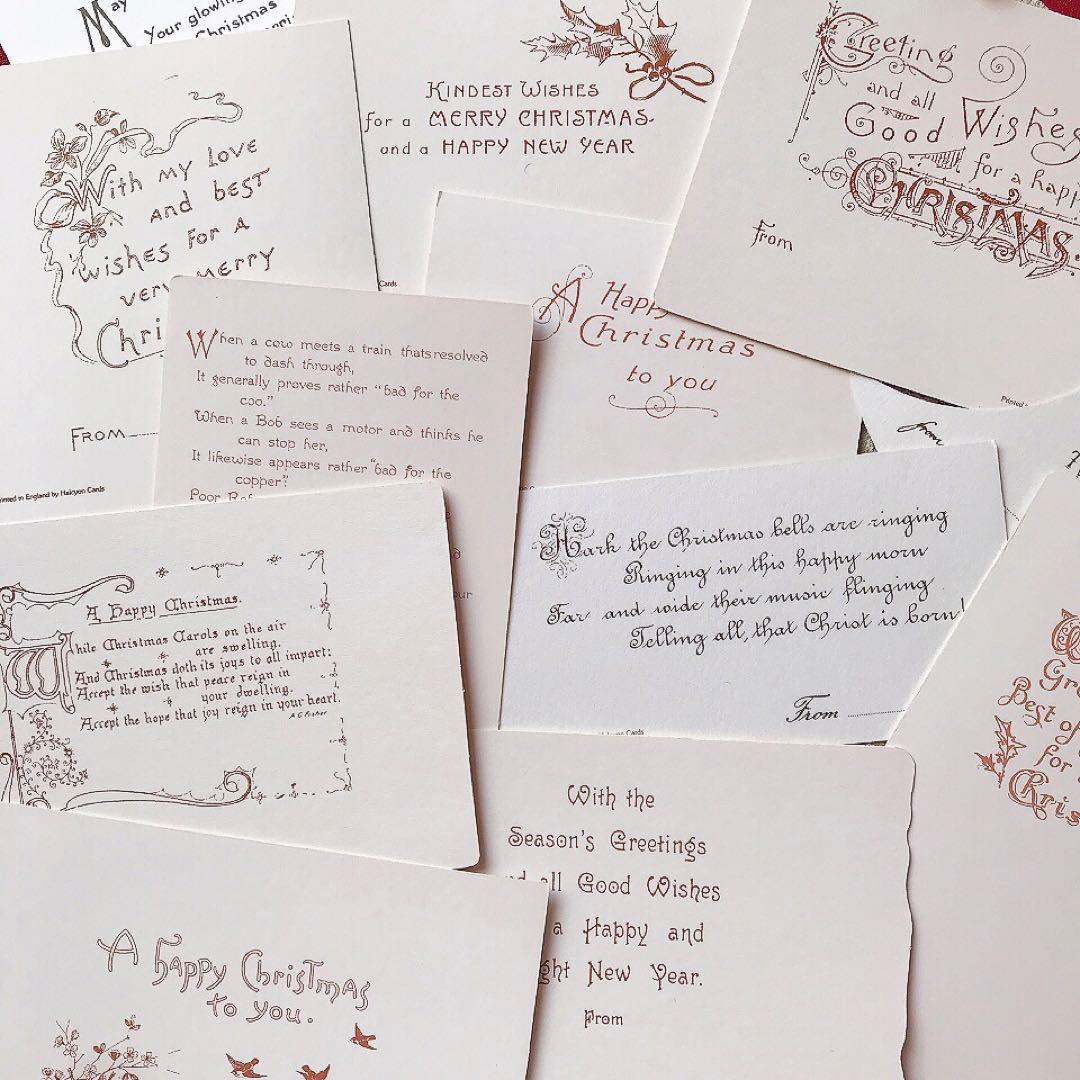 May
Your glowing
Christmas
With my love
and best
wishes for a
very merry
FROM
Printed in England by Halcyon Cards
KINDEST WISHES
for a MERRY CHRISTMAS
and a HAPPY NEW YEAR
Cards
Greeting
and all
Good Wishes
for a
CHRISTMAS.
From
Printed
When a cow meets a train thats resolved
to dash through,
It generally proves rather "bad for the
coo."
When a Bob sees a motor and thinks he
can stop her,
It likewise appears rather "bad for the
copper"!
Poor
A Happy
Christmas
to you
from
Hark the Christmas bells are ringing
Ringing in this happy morn
Far and wide their music flinging
Telling all, that Christ is born!
From
Cards
A Happy Christmas.
While Christmas Carols on the air
are swelling.
And Christmas doth its joys to all impart:
Accept the wish that peace reign in
your dwelling.
Accept the hope that joy reign in your heart.
Best of
for
With the
Season's Greetings
all Good Wishes
a Happy and
New Year.
From
A happy Christmas
to you.